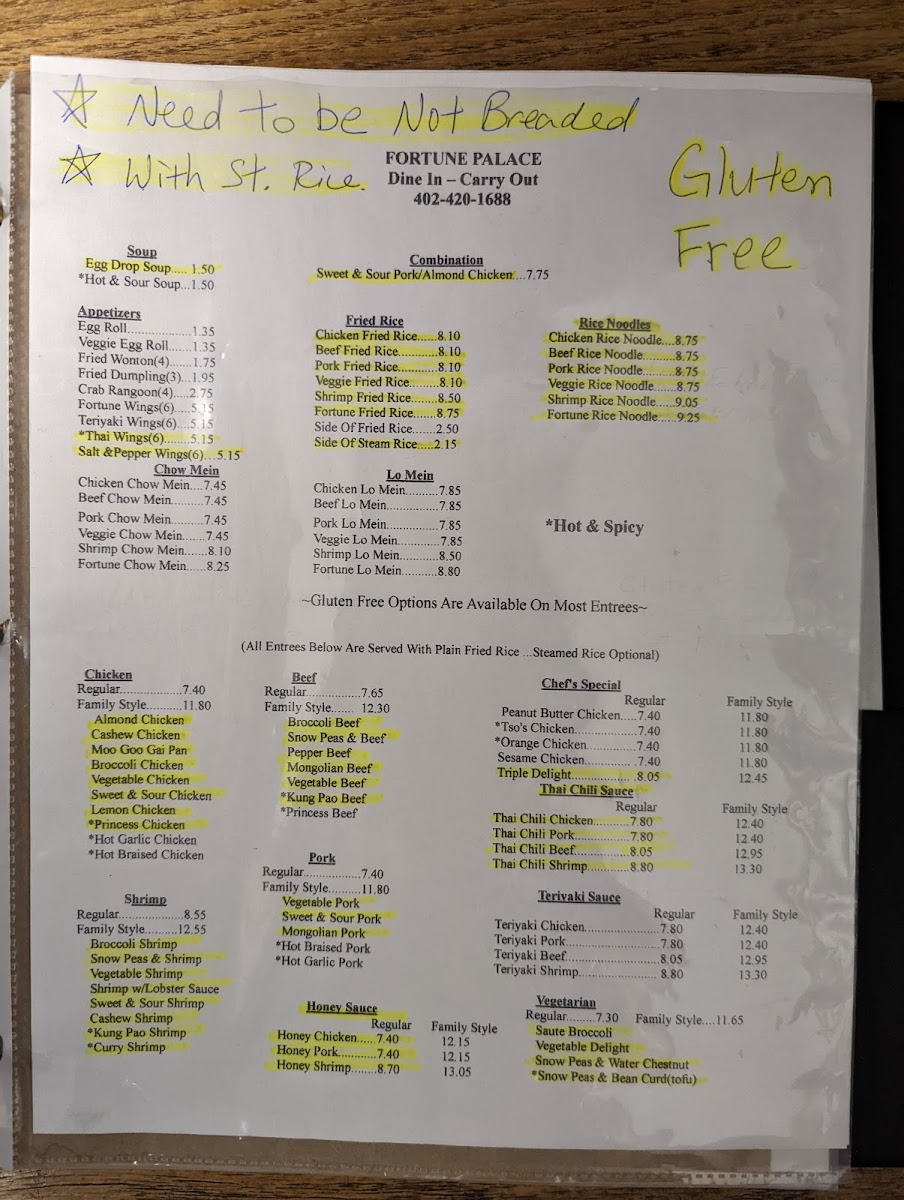 ☆ Need to be Not Breaded
☆ With St. Rice.
Gluten
Free
FORTUNE PALACE
Dine In – Carry Out
402-420-1688
Soup
Egg Drop Soup..... 1.50
*Hot & Sour Soup...1.50
Combination
Sweet & Sour Pork/Almond Chicken....7.75
Appetizers
Egg Roll....................1.35
Veggie Egg Roll......1.35
Fried Wonton(4)......1.75
Fried Dumpling(3)...1.95
Crab Rangoon(4).....2.75
Fortune Wings(6).....5.15
Teriyaki Wings(6)....5.15
*Thai Wings(6)........5.15
Salt &Pepper Wings(6)...5.15
Fried Rice
Chicken Fried Rice......8.10
Beef Fried Rice...........8.10
Pork Fried Rice...........8.10
Veggie Fried Rice........8.10
Shrimp Fried Rice.......8.50
Fortune Fried Rice......8.75
Side Of Fried Rice......2.50
Side Of Steam Rice.....2.15
Rice Noodles
Chicken Rice Noodle....8.75
Beef Rice Noodle.........8.75
Pork Rice Noodle.........8.75
Veggie Rice Noodle......8.75
Shrimp Rice Noodle.....9.05
Fortune Rice Noodle.....9.25
Chow Mein
Chicken Chow Mein....7.45
Beef Chow Mein.........7.45
Pork Chow Mein.........7.45
Veggie Chow Mein......7.45
Shrimp Chow Mein......8.10
Fortune Chow Mein.....8.25
Lo Mein
Chicken Lo Mein..........7.85
Beef Lo Mein...............7.85
Pork Lo Mein...............7.85
Veggie Lo Mein............7.85
Shrimp Lo Mein...........8.50
Fortune Lo Mein...........8.80
*Hot & Spicy
~Gluten Free Options Are Available On Most Entrees~
(All Entrees Below Are Served With Plain Fried Rice ...Steamed Rice Optional)
Chicken
Regular...................7.40
Family Style...........11.80
Almond Chicken
Cashew Chicken
Moo Goo Gai Pan
Broccoli Chicken
Vegetable Chicken
Sweet & Sour Chicken
Lemon Chicken
*Princess Chicken
*Hot Garlic Chicken
*Hot Braised Chicken
Beef
Regular...............7.65
Family Style....... 12.30
Broccoli Beef
Snow Peas & Beef
Pepper Beef
Mongolian Beef
Vegetable Beef
*Kung Pao Beef
*Princess Beef
Chef's Special
Regular Family Style
Peanut Butter Chicken.....7.40 11.80
*Tso's Chicken.................7.40 11.80
*Orange Chicken.............7.40 11.80
Sesame Chicken..............7.40 11.80
Triple Delight...................8.05 12.45
Thai Chili Sauce
Regular Family Style
Thai Chili Chicken.........7.80 12.40
Thai Chili Pork..............7.80 12.40
Thai Chili Beef..............8.05 12.95
Thai Chili Shrimp..........8.80 13.30
Shrimp
Regular....................8.55
Family Style............12.55
Broccoli Shrimp
Snow Peas & Shrimp
Vegetable Shrimp
Shrimp w/Lobster Sauce
Sweet & Sour Shrimp
Cashew Shrimp
*Kung Pao Shrimp
*Curry Shrimp
Pork
Regular....................7.40
Family Style..........11.80
Vegetable Pork
Sweet & Sour Pork
Mongolian Pork
*Hot Braised Pork
*Hot Garlic Pork
Teriyaki Sauce
Regular Family Style
Teriyaki Chicken...................7.80 12.40
Teriyaki Pork........................7.80 12.40
Teriyaki Beef........................8.05 12.95
Teriyaki Shrimp....................8.80 13.30
Honey Sauce
Regular Family Style
Honey Chicken.....7.40 12.15
Honey Pork...........7.40 12.15
Honey Shrimp.......8.70 13.05
Vegetarian
Regular.........7.30 Family Style....11.65
Saute Broccoli
Vegetable Delight
Snow Peas & Water Chestnut
*Snow Peas & Bean Curd(tofu)